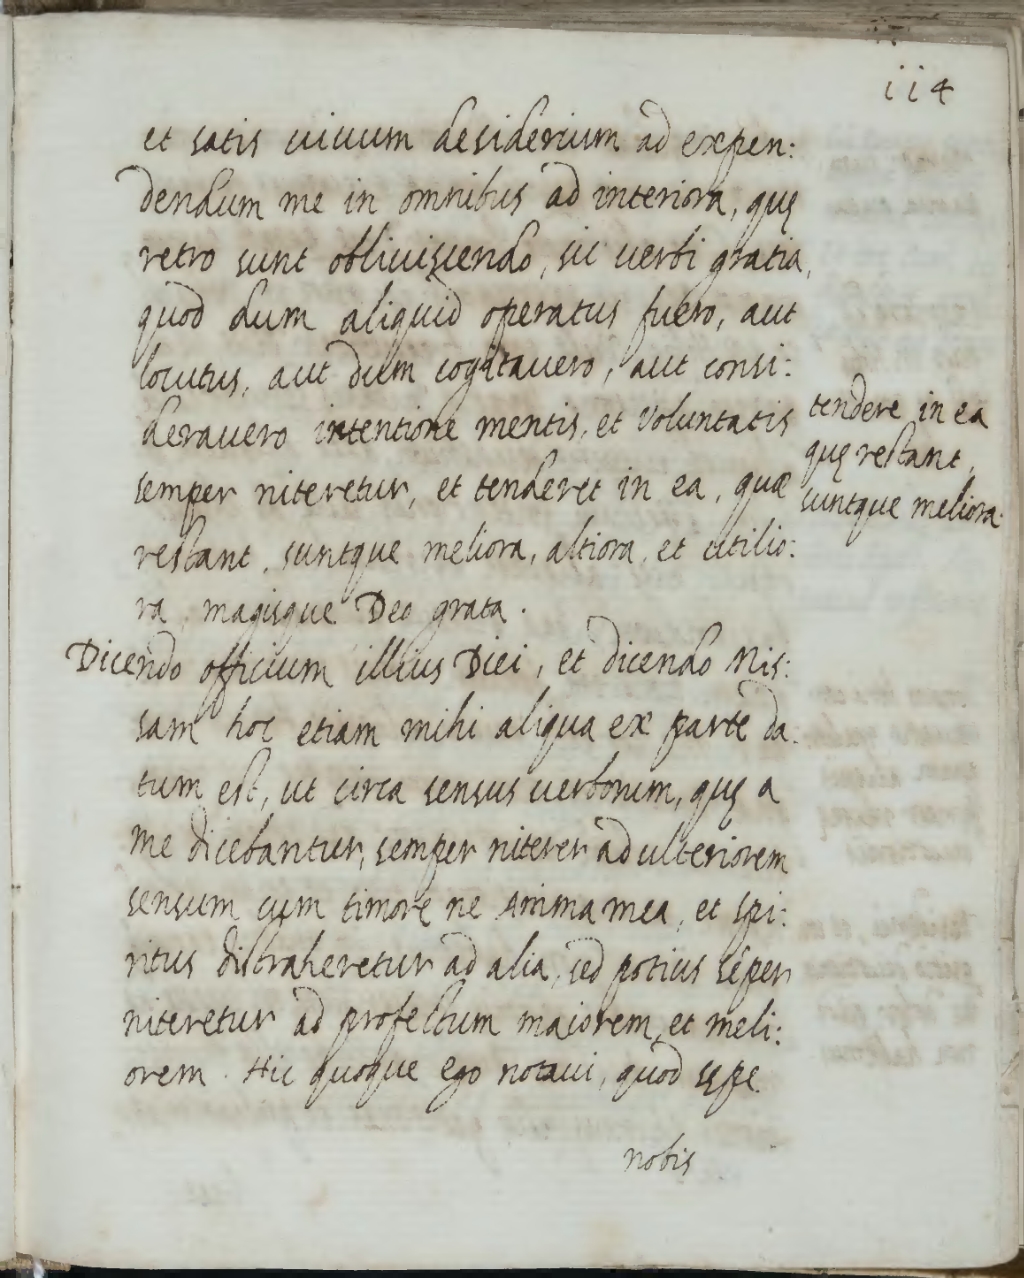 114
et satis uiuum desiderium ad expen:
dendum me in omnibus ad interiora, quę
retro sunt obliuiscendo, sic uerbi gratia,
quod dum aliquid operatus fuero, aut
locutus, aut dum cogitauero, aut consi:
derauero intentione mentis, et voluntatis
semper niteretur, et tenderet in ea, quæ
restant, suntque meliora, altiora, et utilio:
ra, magisque Deo grata.
tendere in ea
quę restant,
suntque meliora.
Dicendo officium illius Diei, et dicendo Mis:
sam hoc etiam mihi aliqua ex parte da:
tum est, ut circa sensus uerborum, quę a
me dicebantur, semper niterer ad ulteriorem
sensum cum timore ne Anima mea, et spi:
ritus distraheretur ad alia, sed potius sẽper
niteretur ad profectum maiorem, et meli:
orem. Hic quoque ego notaui, quod sępe
nobis